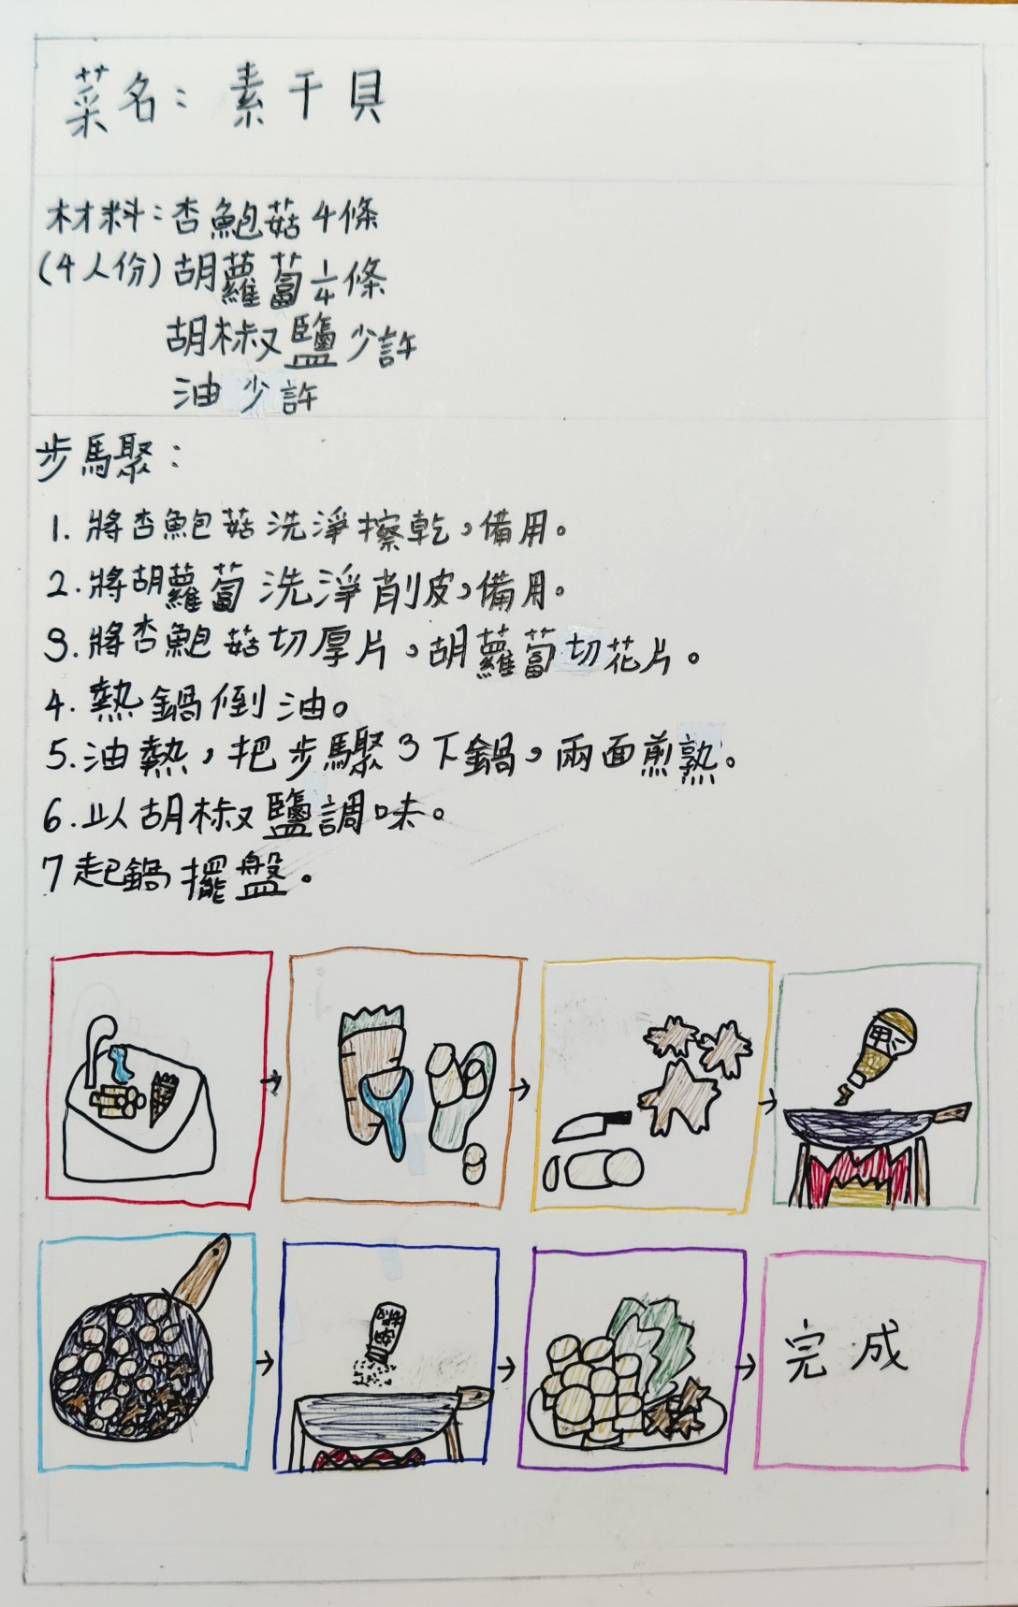 菜名：素干貝
材料：杏鮑菇4條
(4人份)胡蘿蔔1/4條
胡椒鹽少許
油少許
步驟：
1.將杏鮑菇洗淨擦乾，備用。
2.將胡蘿蔔洗淨削皮，備用。
3.將杏鮑菇切厚片，胡蘿蔔切花片。
4.熱鍋倒油。
5.油熱，把步驟3下鍋，兩面煎熟。
6.以胡椒鹽調味。
7起鍋擺盤。
完成